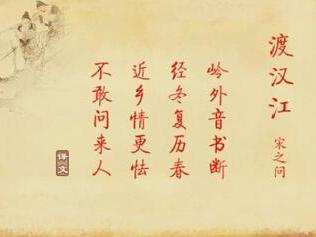 渡汉江
宋之问
岭外音书断
经冬复历春
近乡情更怯
不敢问来人
译文